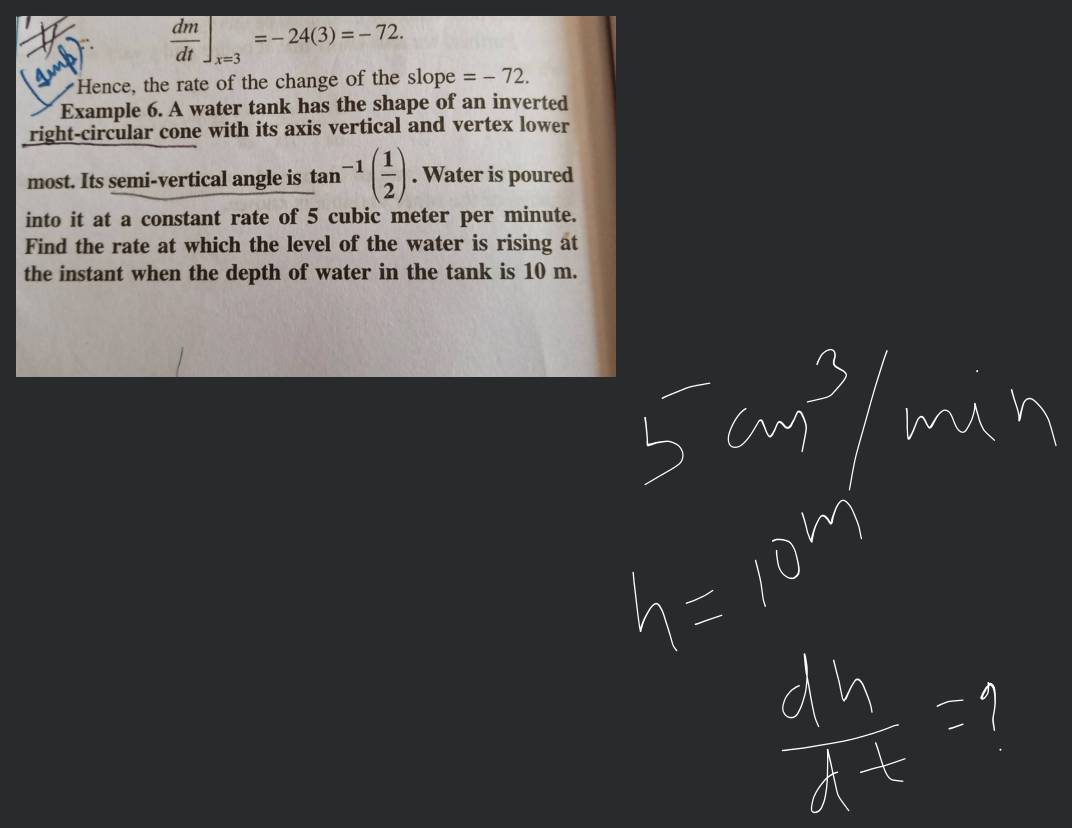 dm/dt]x=3 = – 24(3) = – 72.
(Imp)
Hence, the rate of the change of the slope = – 72.
Example 6. A water tank has the shape of an inverted
right-circular cone with its axis vertical and vertex lower
most. Its semi-vertical angle is tan⁻¹(1/2). Water is poured
into it at a constant rate of 5 cubic meter per minute.
Find the rate at which the level of the water is rising at
the instant when the depth of water in the tank is 10 m.
5 cm³/min
h = 10m
dh/dt = ?